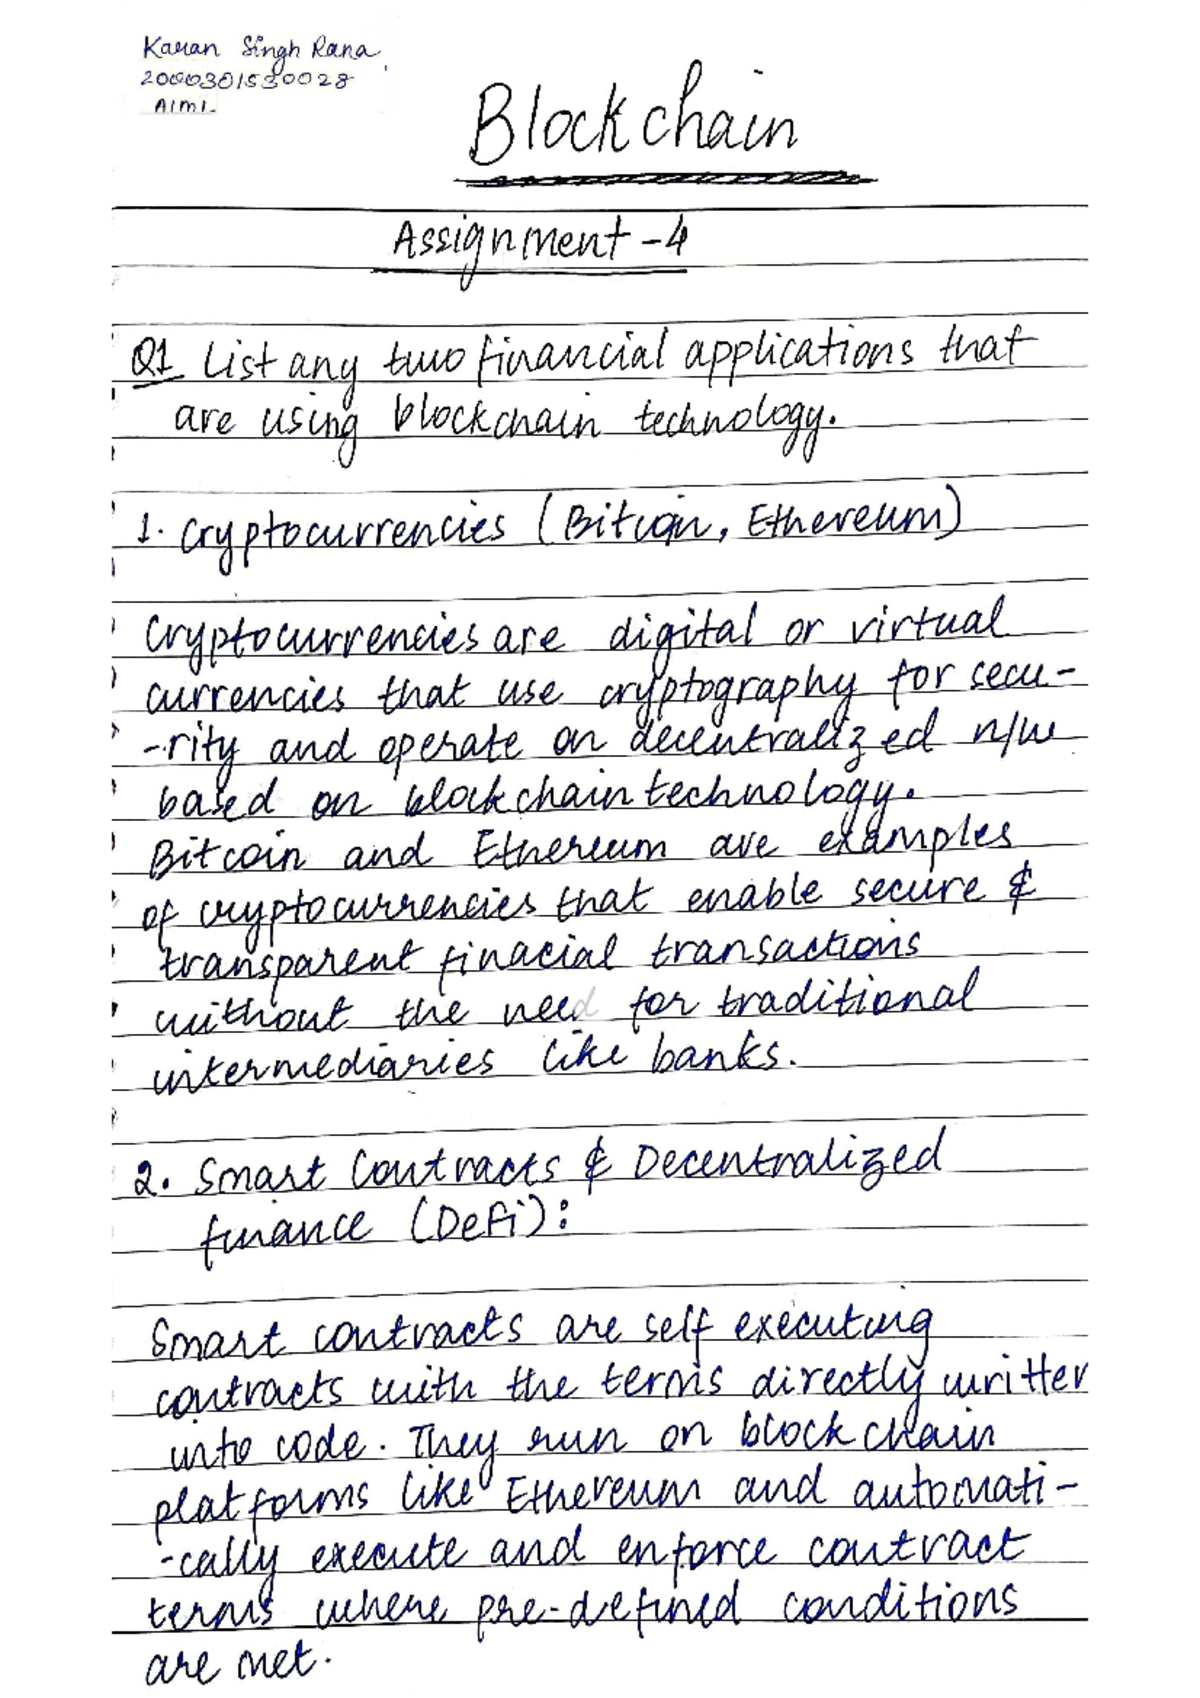 Karan Singh Rana
2000301530028
AIML
Blockchain
Assignment -4
Q1 List any two financial applications that
are using blockchain technology.
1. Cryptocurrencies (Bitcoin, Ethereum)
Cryptocurrencies are digital or virtual
currencies that use cryptography for secu-
-rity and operate on decentralized n/w
based on blockchain technology.
Bitcoin and Ethereum are examples
of cryptocurrencies that enable secure &
transparent finacial transactions
without the need for traditional
intermediaries like banks.
2. Smart Contracts & Decentralized
finance (DeFi):
Smart contracts are self executing
contracts with the terms directly written
into code. They run on blockchain
platforms like Ethereum and automati-
-cally execute and enforce contract
terms where pre-defined conditions
are met.